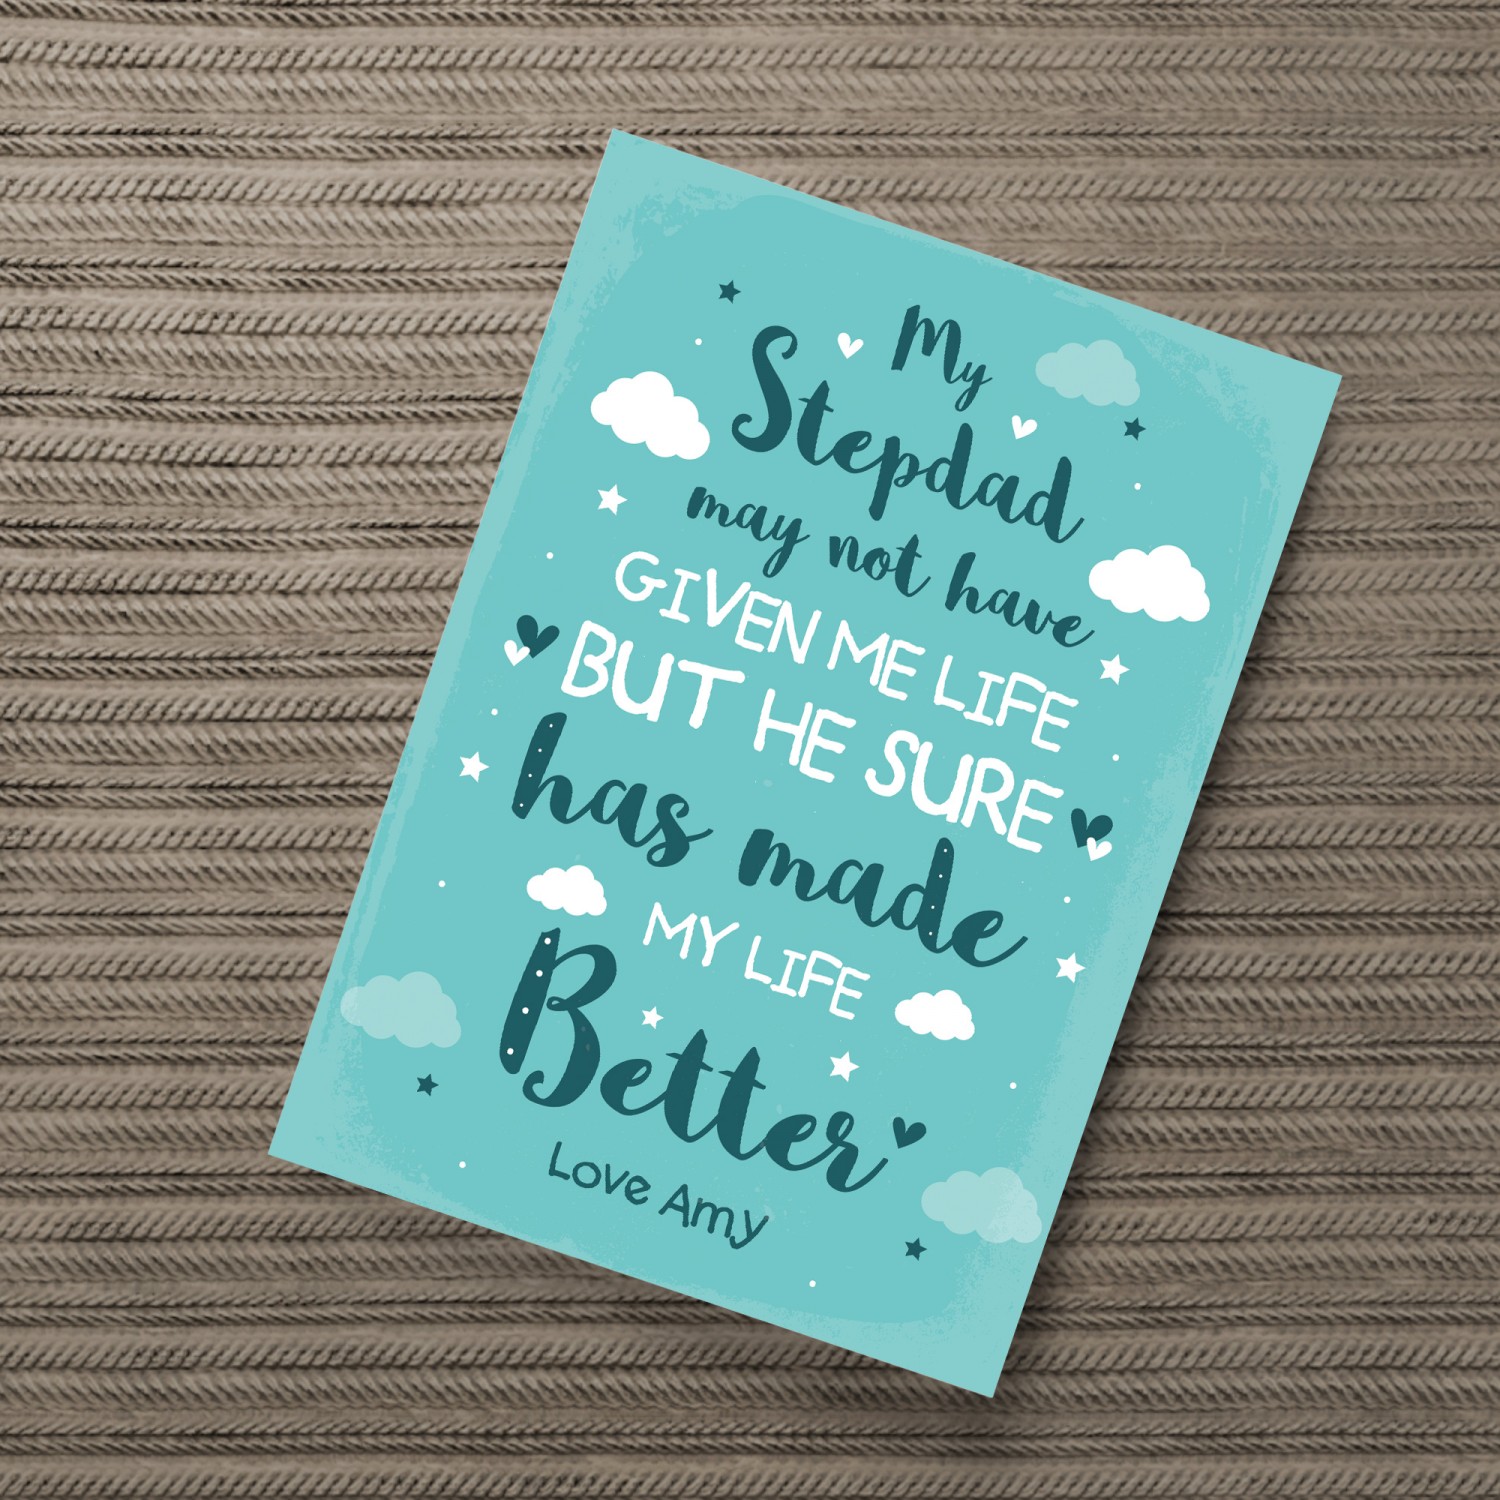 My
Stepdad
may not have
GIVEN ME LIFE
BUT HE SURE
has made
MY LIFE
Better
Love Amy